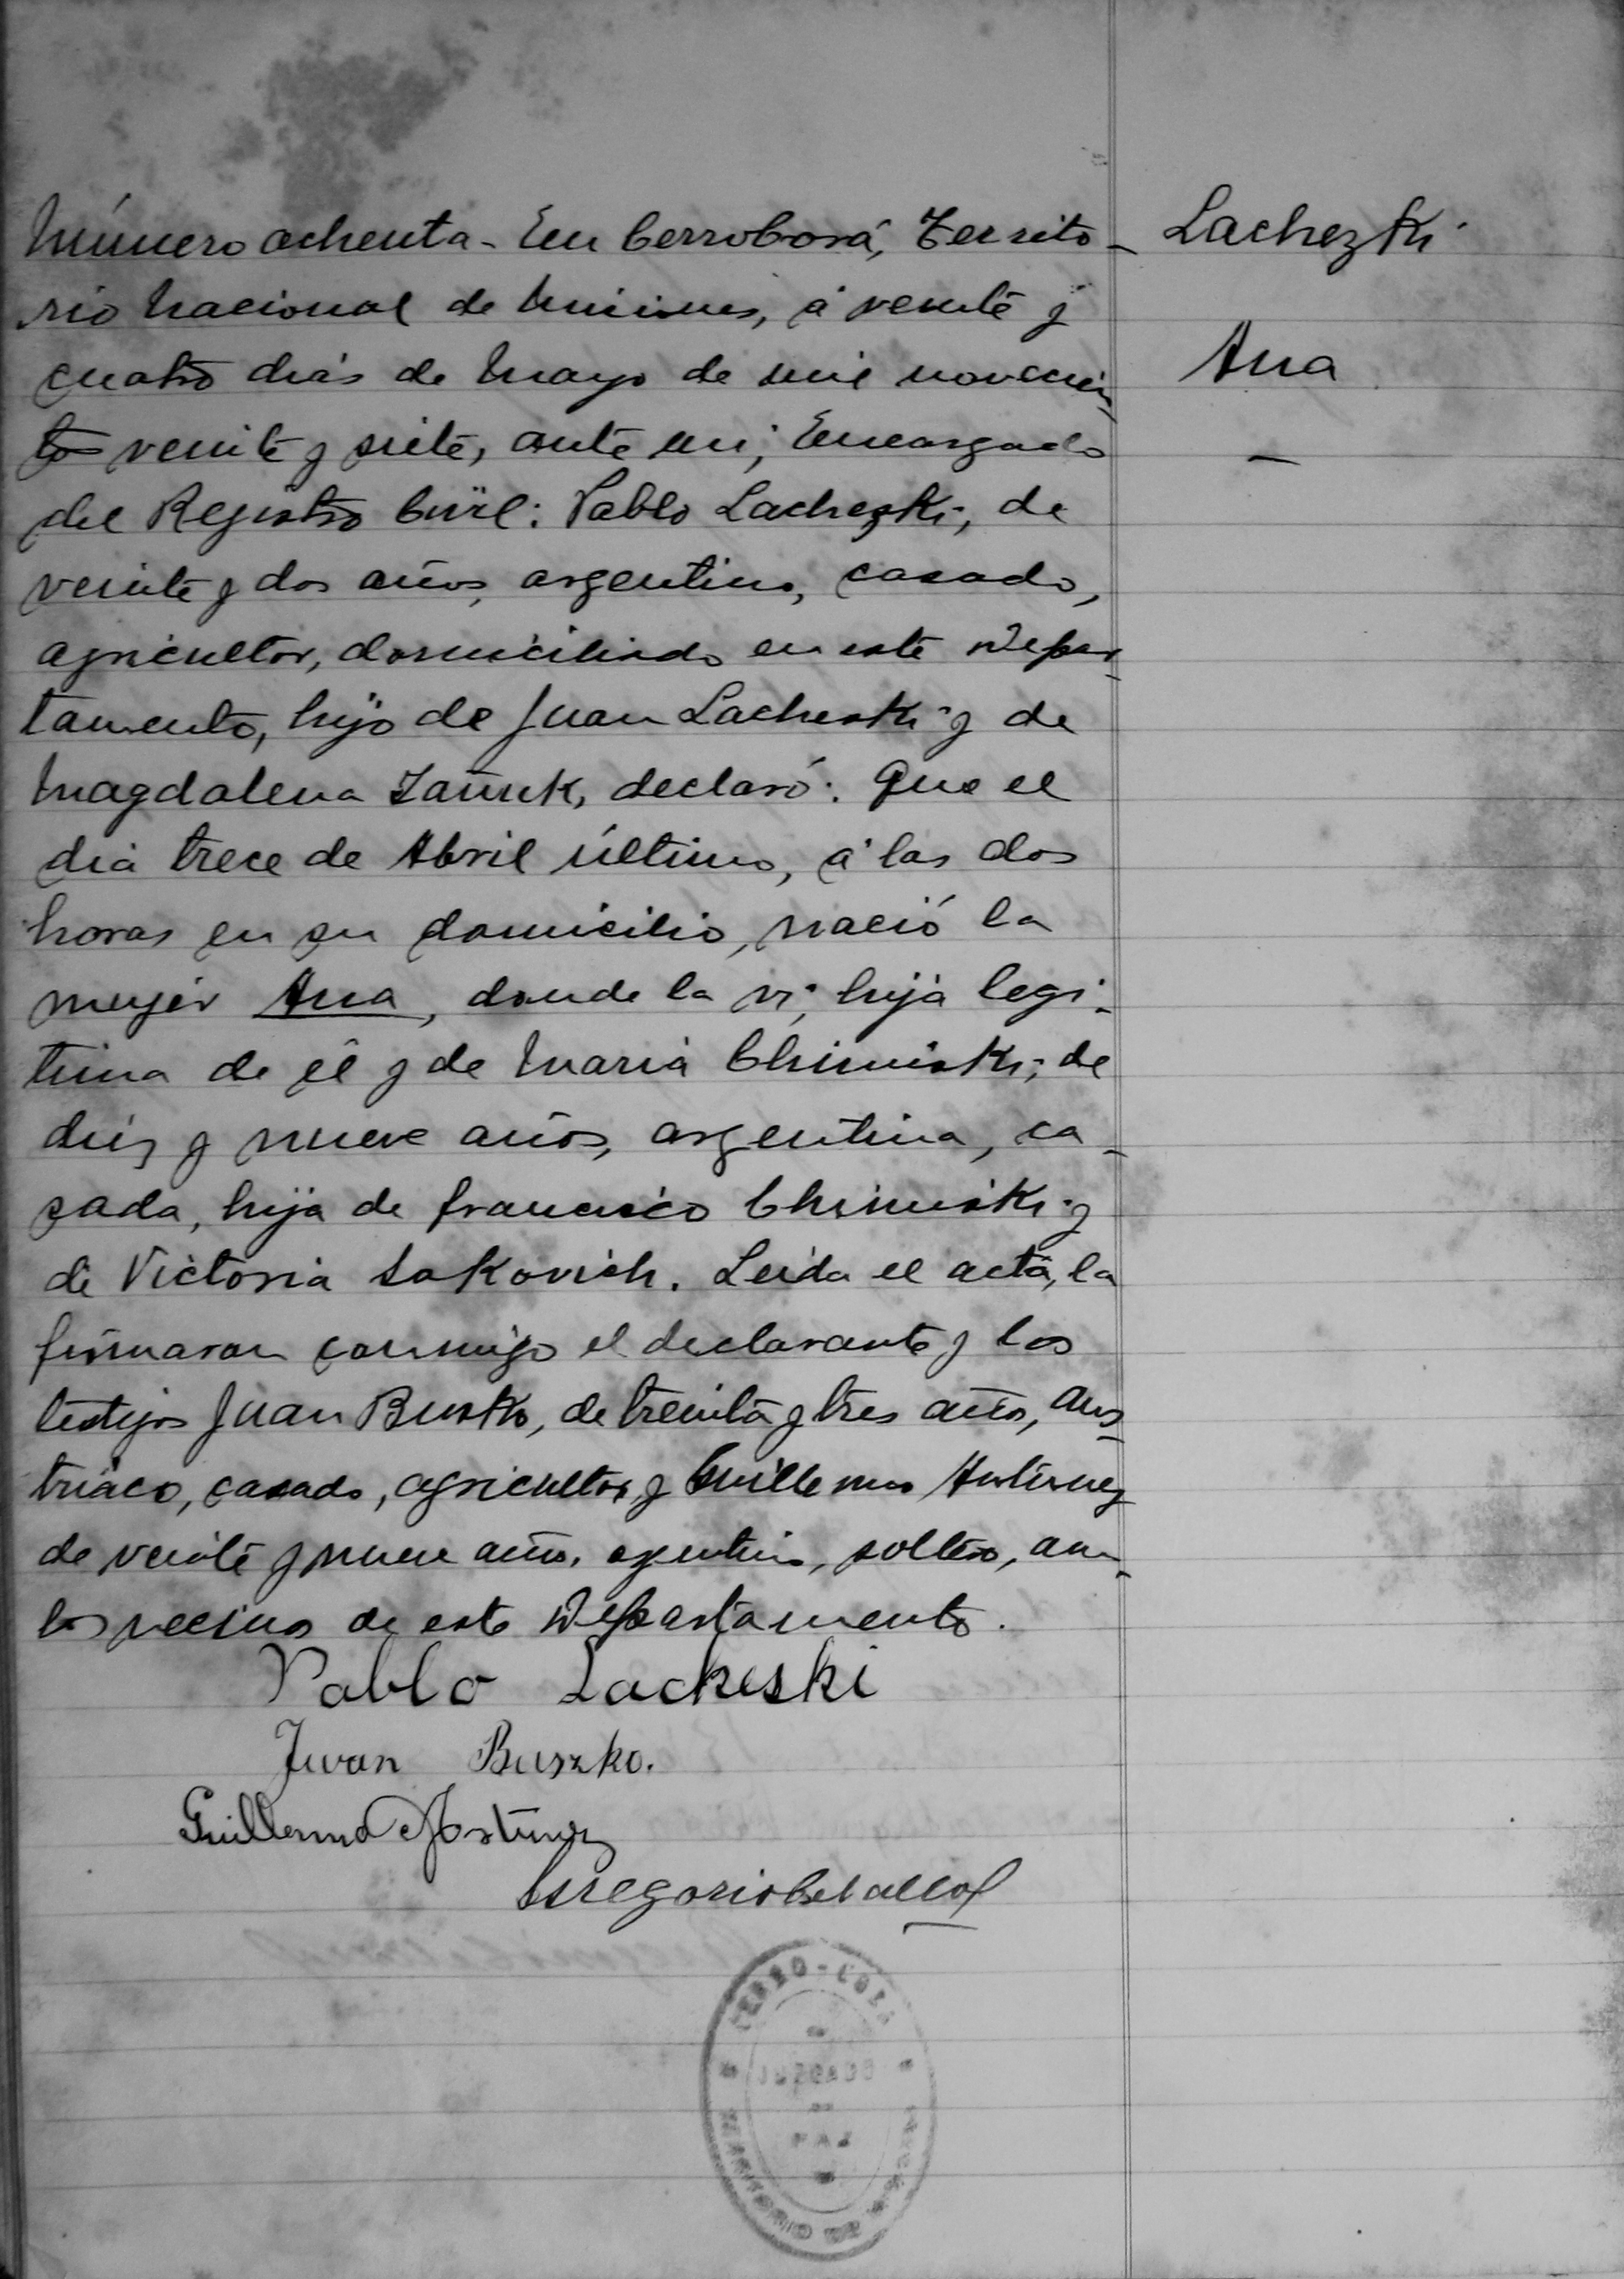 Número ochenta - En Cerro Corá, Territo-
rio Nacional de Misiones, á veinte y
cuatro dias de Mayo de mil novecien-
tos veinte y siete, ante mi, Encargado
del Registro Civil: Pablo Lachezki, de
veinte y dos años, argentino, casado,
agricultor, domiciliado en este Depar-
tamento, hijo de Juan Lacheski y de
Magdalena declaró: Que el
dia trece de Abril último, á las dos
horas en su domicilio, nació la
mujer Ana, donde la vi, hija legi-
tima de él y de Maria Chimiski, de
diez y nueve años, argentina, ca-
sada, hija de Francisco Chimiski y
de Victoria Sakovich. Leida el acta, la
firmaron conmigo el declarante y los
testigos Juan Busko, de treinta y tres años, aus-
triaco, casado, agricultor y Guillermo
de veinte y nueve años, argentino, soltero, am-
bos vecinos de este Departamento.
Pablo Lacheski
Juan Buszko.
Guillermo
Gregorio
Lachezki
Ana
CERRO-CORÁ
JUZGADO
DE
PAZ
TERRITORIO DE MISIONES